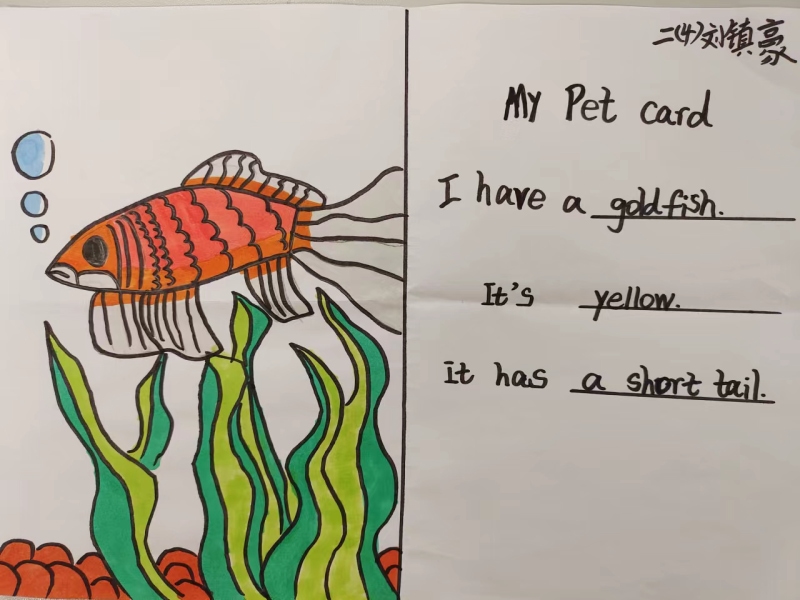 二(4)刘镇豪
My Pet card
I have a goldfish.
It's yellow.
It has a short tail.